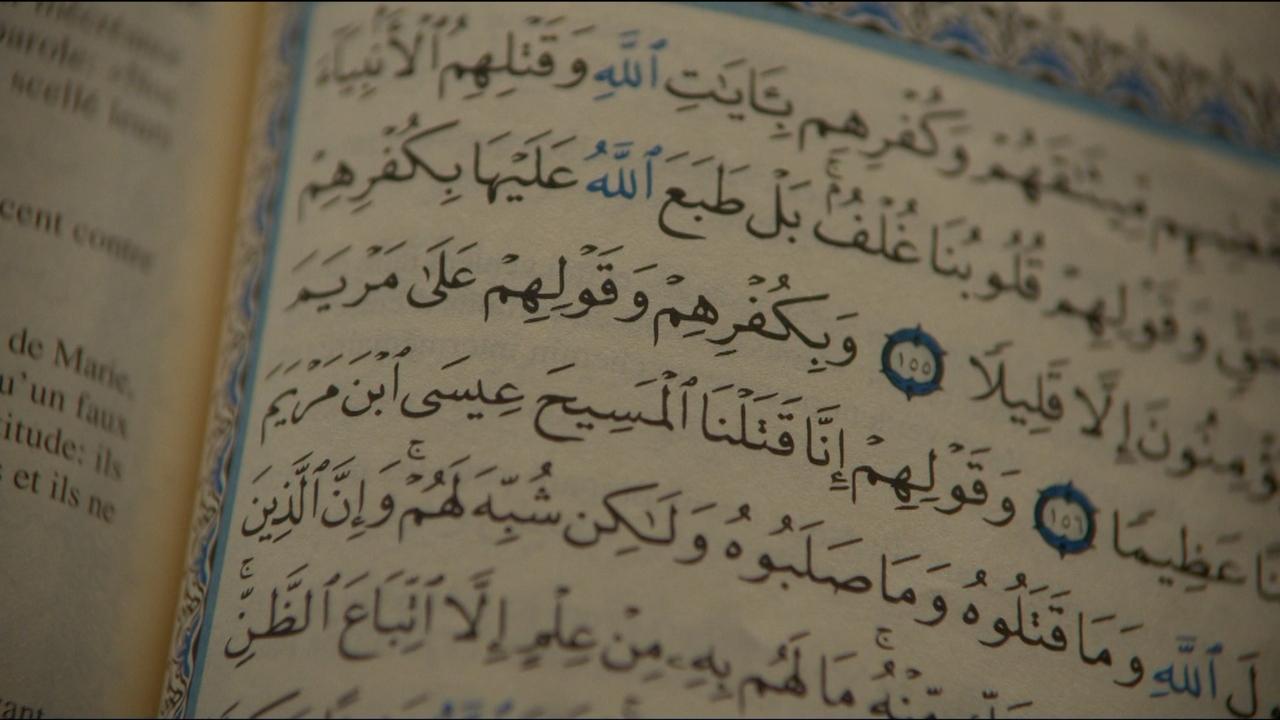 parole:
scellé leurs
cent contre
de Marie,
u'un faux
itude: ils
s et ils ne
مِّيثَٰقَهُمْ وَكُفْرِهِم بِـَٔايَٰتِ ٱللَّهِ وَقَتْلِهِمُ ٱلْأَنۢبِيَآءَ
حَقٍّ وَقَوْلِهِمْ قُلُوبُنَا غُلْفٌۢ ۚ بَلْ طَبَعَ ٱللَّهُ عَلَيْهَا بِكُفْرِهِمْ
ؤْمِنُونَ إِلَّا قَلِيلًا ١٥٥ وَبِكُفْرِهِمْ وَقَوْلِهِمْ عَلَىٰ مَرْيَمَ
نًا عَظِيمًا ١٥٦ وَقَوْلِهِمْ إِنَّا قَتَلْنَا ٱلْمَسِيحَ عِيسَى ٱبْنَ مَرْيَمَ
ولَ ٱللَّهِ وَمَا قَتَلُوهُ وَمَا صَلَبُوهُ وَلَٰكِن شُبِّهَ لَهُمْ ۚ وَإِنَّ ٱلَّذِينَ
مِّنْهُ ۚ مَا لَهُم بِهِۦ مِنْ عِلْمٍ إِلَّا ٱتِّبَاعَ ٱلظَّنِّ ۚ